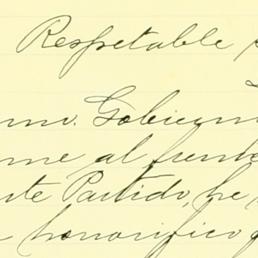 Respetable
mo. Gobierno
me al frente
te Partido, he
honorífico